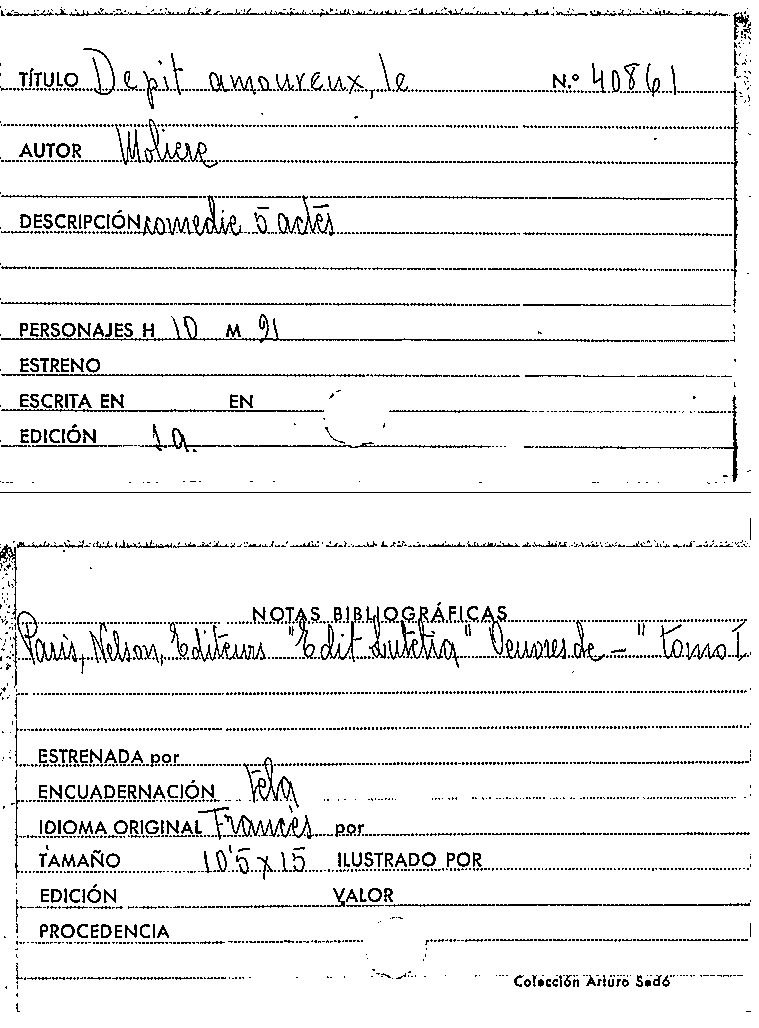 TÍTULO Depit amoureux, le N.º 40861
AUTOR Moliere
DESCRIPCIÓN comedie 5 actes
PERSONAJES H 10 M
ESTRENO
ESCRITA EN EN
EDICIÓN 1a.
NOTAS BIBLIOGRÁFICAS
Paris, Nelson, Editeurs "Edit Lutetia" Oeuvres de — " tomo I
ESTRENADA por
ENCUADERNACIÓN tela
IDIOMA ORIGINAL Francés por
TAMAÑO 10'5 x 15 ILUSTRADO POR
EDICIÓN VALOR
PROCEDENCIA
Colección Arturo Sedó